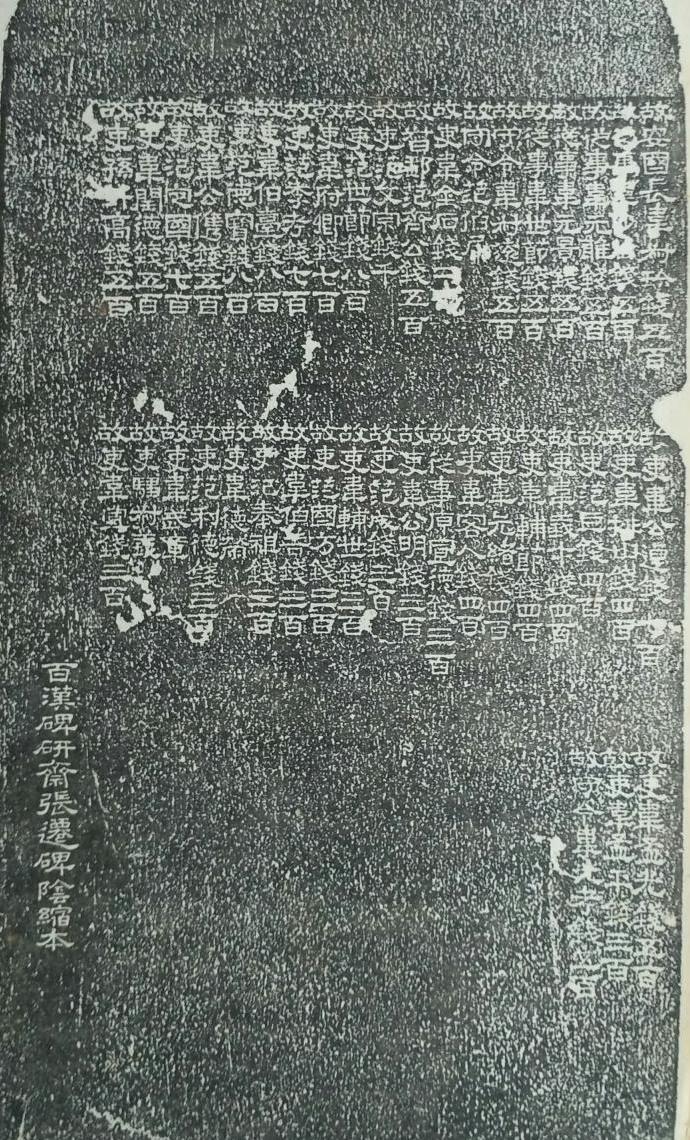 故安國長韋叔珍錢五百
故從事韋錢五百
故從事韋元雅錢五百
故從事韋元景錢五百
故從事韋世節錢五百
故守令韋叔遠錢五百
故守令范伯犀
故吏韋金石錢二百
故督郵范齊公錢五百
故吏范文宗錢千
故吏范世節錢八百
故吏韋府卿錢七百
故吏范季考錢七百
故吏韋伯臺錢八百
故吏范德寶錢八百
故吏韋公僎錢五百
故吏氾定國錢七百
故吏韋閏德錢五百
故吏孫升高錢五百
故吏韋公逴錢百
故吏韋排山錢四百
故吏范巨錢四百
故吏韋義才錢四百
故吏韋輔節錢四百
故吏韋元緒錢四百
故吏韋客人錢四百
故從事原宣德錢三百
故吏韋公明錢三百
故吏范成錢三百
故吏韋輔世錢三百
故吏范國方錢三百
故吏韋伯善錢三百
故吏范奉祖錢三百
故吏韋德榮
故吏范利德錢三百
故吏韋武章
故吏騶叔義
故吏韋宣錢三百
故吏韋孟光錢五百
故吏韋孟平錢三百
故守令韋元考錢五百
百漢碑研齋張遷碑陰縮本